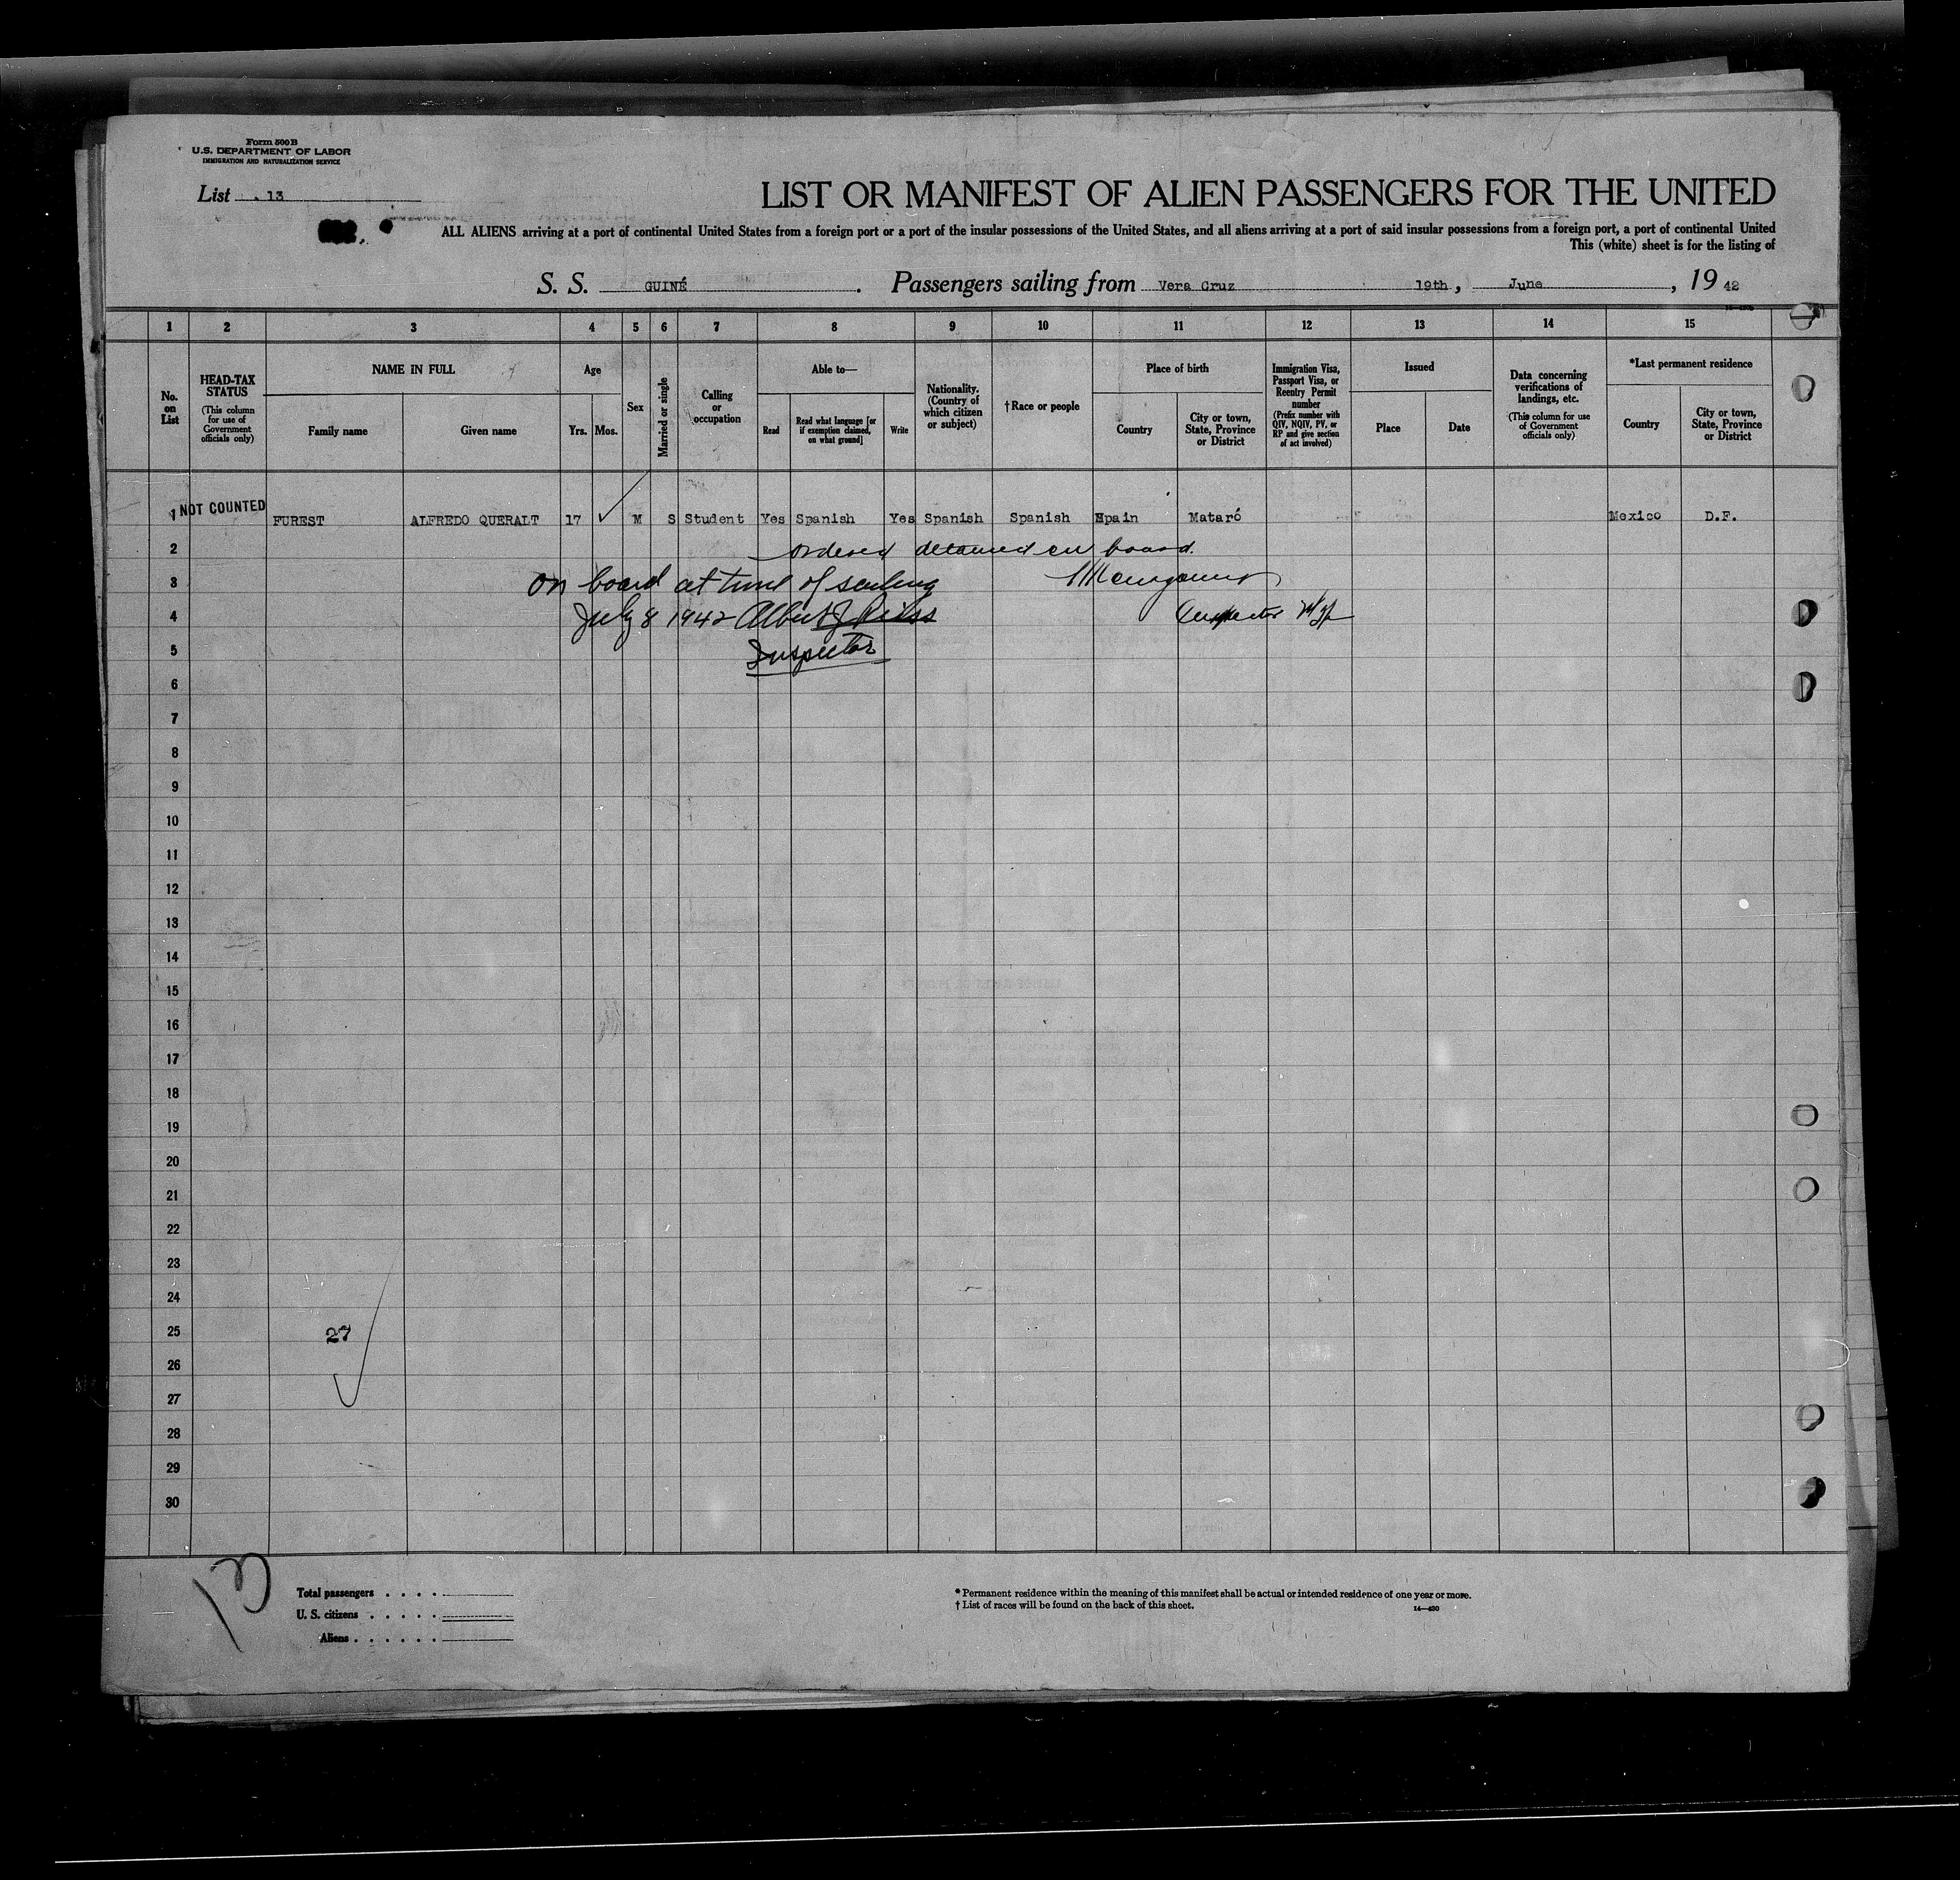 Form 500 B
U.S. DEPARTMENT OF LABOR
IMMIGRATION AND NATURALIZATION SERVICE
List 13
LIST OR MANIFEST OF ALIEN PASSENGERS FOR THE UNITED
ALL ALIENS arriving at a port of continental United States from a foreign port or a port of the insular possessions of the United States, and all aliens arriving at a port of said insular possessions from a foreign port, a port of continental United
This (white) sheet is for the listing of
S. S. GUINÉ. Passengers sailing from Vera Cruz 19th, June, 19 42
1 2 3 4 5 6 7 8 9 10 11 12 13 14 15
No. on List
HEAD-TAX STATUS (This column for use of Government officials only)
NAME IN FULL
Family name Given name
Age
Yrs. Mos.
Sex
Married or single
Calling or occupation
Able to—
Read Read what language [or if exemption claimed, on what ground] Write
Nationality. (Country of which citizen or subject)
†Race or people
Place of birth
Country City or town, State, Province or District
Immigration Visa, Passport Visa, or Reentry Permit number (Prefix number with QIV, NQIV, PV, or RP and give section of act involved)
Issued
Place Date
Data concerning verifications of landings, etc. (This column for use of Government officials only)
*Last permanent residence
Country City or town, State, Province or District
1 NOT COUNTED FUREST ALFREDO QUERALT 17 M S Student Yes Spanish Yes Spanish Spanish Spain Mataró Mexico D.F.
2 ordered detained on board.
3 On board at time of sailing
4 July 8 1942 Albert J Inspector
5 Inspector
6
7
8
9
10
11
12
13
14
15
16
17
18
19
20
21
22
23
24
25 27
26
27
28
29
30
13
Total passengers . . . .
U. S. citizens . . . . .
Aliens . . . . . .
* Permanent residence within the meaning of this manifest shall be actual or intended residence of one year or more.
† List of races will be found on the back of this sheet.
14—430